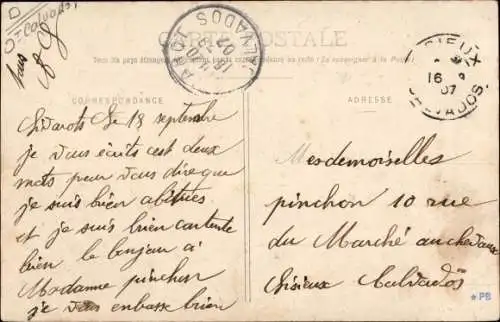 D
o-Calvados
CARTE POSTALE
CALVADOS
07
Tous les pays étrangers
(Se renseigner à la Poste)
LISIEUX
16 9
07
CALVADOS
CORRESPONDANCE
ADRESSE
Le 13 septembre
je vous écrits cest deux
mots pour vous dire que
je suis bien abituer
et je suis bien contente
bien le bonjour a
Madame pinchon
je vous enbasse bien
Mesdemoiselles
pinchon 10 rue
du Marché au chevaux
Lisieux Calvados
*PB